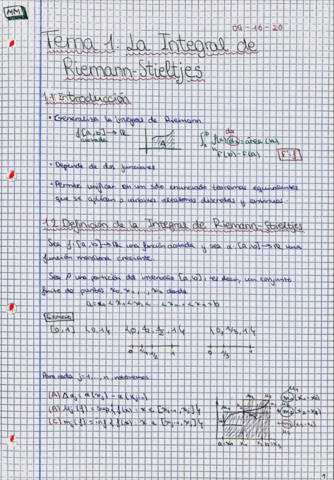 MM
09-10-20
Tema 1. La Integral de
Riemann-Stieltjes
1.1 Introducción
• Generaliza la integral de Riemann
f: [a,b] → ℝ
acotada
A
∫ₐᵇ f(x) dx = área (A)
F(b) - F(a)
• Depende de dos funciones
• Permite unificar en un solo enunciado teoremas equivalentes
que se aplican a variables aleatorias discretas y continuas.
1.2 Definición de la Integral de Riemann-Stieltjes
Sea f: [a,b] → ℝ una función acotada y sea α: [a,b] → ℝ una
función monótona creciente.
Sea P una partición del intervalo [a,b], es decir, un conjunto
finito de puntos x₀, x₁, ..., xₙ donde
a = x₀ < x₁ < x₂ < ... < xₙ₋₁ < xₙ = b
Ejemplo
[0,1] {0,1} {0, 1/3, 1}
0 1 0 1/3 1
Para cada j=1,...,n, notaremos
(A) Δαⱼ = α(xⱼ) - α(xⱼ₋₁)
(B) Mⱼ(f) = sup {f(x) : x ∈ [xⱼ₋₁, xⱼ]}
(C) mⱼ(f) = inf {f(x) : x ∈ [xⱼ₋₁, xⱼ]}